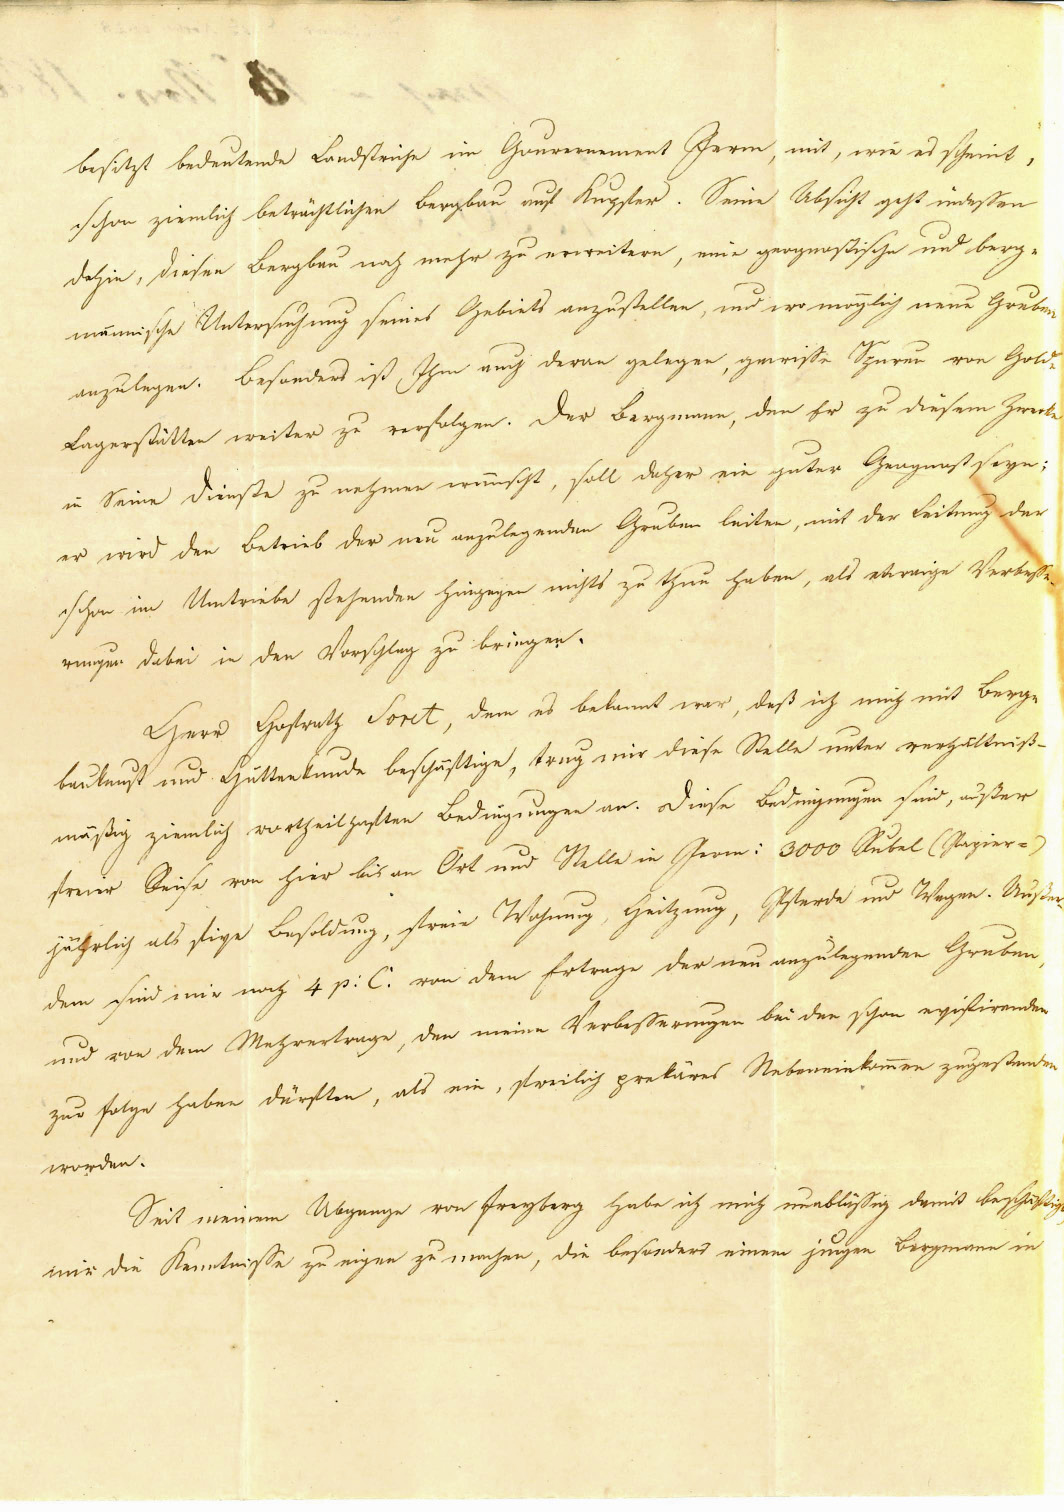 besitzt bedeutende Landstriche im Gouvernement Perm, mit, wie es scheint,
schon ziemlich beträchtlichen Bergbau auf Kupfer. Seine Absicht geht indessen
dahin, diesen Bergbau noch mehr zu erweitern, eine geognostische und berg-
männische Untersuchung seines Gebiets anzustellen, und wo möglich neue Gruben
anzulegen. Besonders ist Ihm auch daran gelegen, gewisse Spuren von Gold-
Lagerstätten weiter zu verfolgen. Der Bergmann, den Er zu diesem Zwecke
in Seine Dienste zu nehmen wünscht, soll daher ein guter Geognost seyn;
er wird den Betrieb der neu anzulegenden Gruben leiten, mit der Leitung der
schon im Umtriebe stehenden hingegen nichts zu thun haben, als etwaige Verbesse-
rungen dabei in den Vorschlag zu bringen.
Herr Hofrath Soret, dem es bekannt war, daß ich mich mit Berg-
baukunst und Hüttenkunde beschäftige, trug mir diese Stelle unter verhältniß-
mäßig ziemlich vortheilhaften Bedingungen an. Diese Bedingungen sind, außer
freier Reise von hier bis an Ort und Stelle in Perm: 3000 Rubel (Papier-)
jährlich als fixe Besoldung, freie Wohnung, Heitzung, Pferde und Wagen. Außer-
dem sind mir noch 4 p: C. von dem Ertrage der neu anzulegenden Gruben,
und von dem Mehrertrage, den meine Verbesserungen bei den schon existirenden
zur Folge haben dürften, als ein, freilich prekäres Nebeneinkom̄en zugestanden
worden.
Seit meinem Abgange von Freyberg habe ich mich unablässig damit beschäftigt
mir die Kenntnisse zu eigen zu machen, die besonders einem jungen Bergmann in